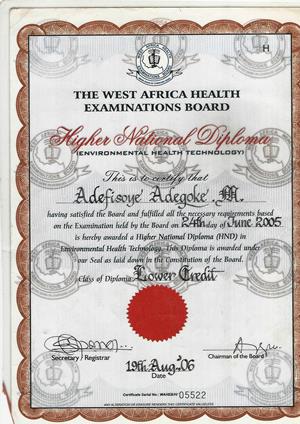 H
THE WEST AFRICA HEALTH
EXAMINATIONS BOARD
Higher National Diploma
(ENVIRONMENTAL HEALTH TECHNOLOGY)
This is to certify that
Adefisoye Adegoke .M.
having satisfied the Board and fulfilled all the necessary requirements based
on the Examination held by the Board on 24th day of June 2005
is hereby awarded a Higher National Diploma (HND) in
Environmental Health Technology. This Diploma is awarded under
our Seal as laid down in the Constitution of the Board.
Class of Diploma Lower Credit
Secretary / Registrar
Chairman of the Board
19th Aug. '06
Date
Certificate Serial No.: 05522